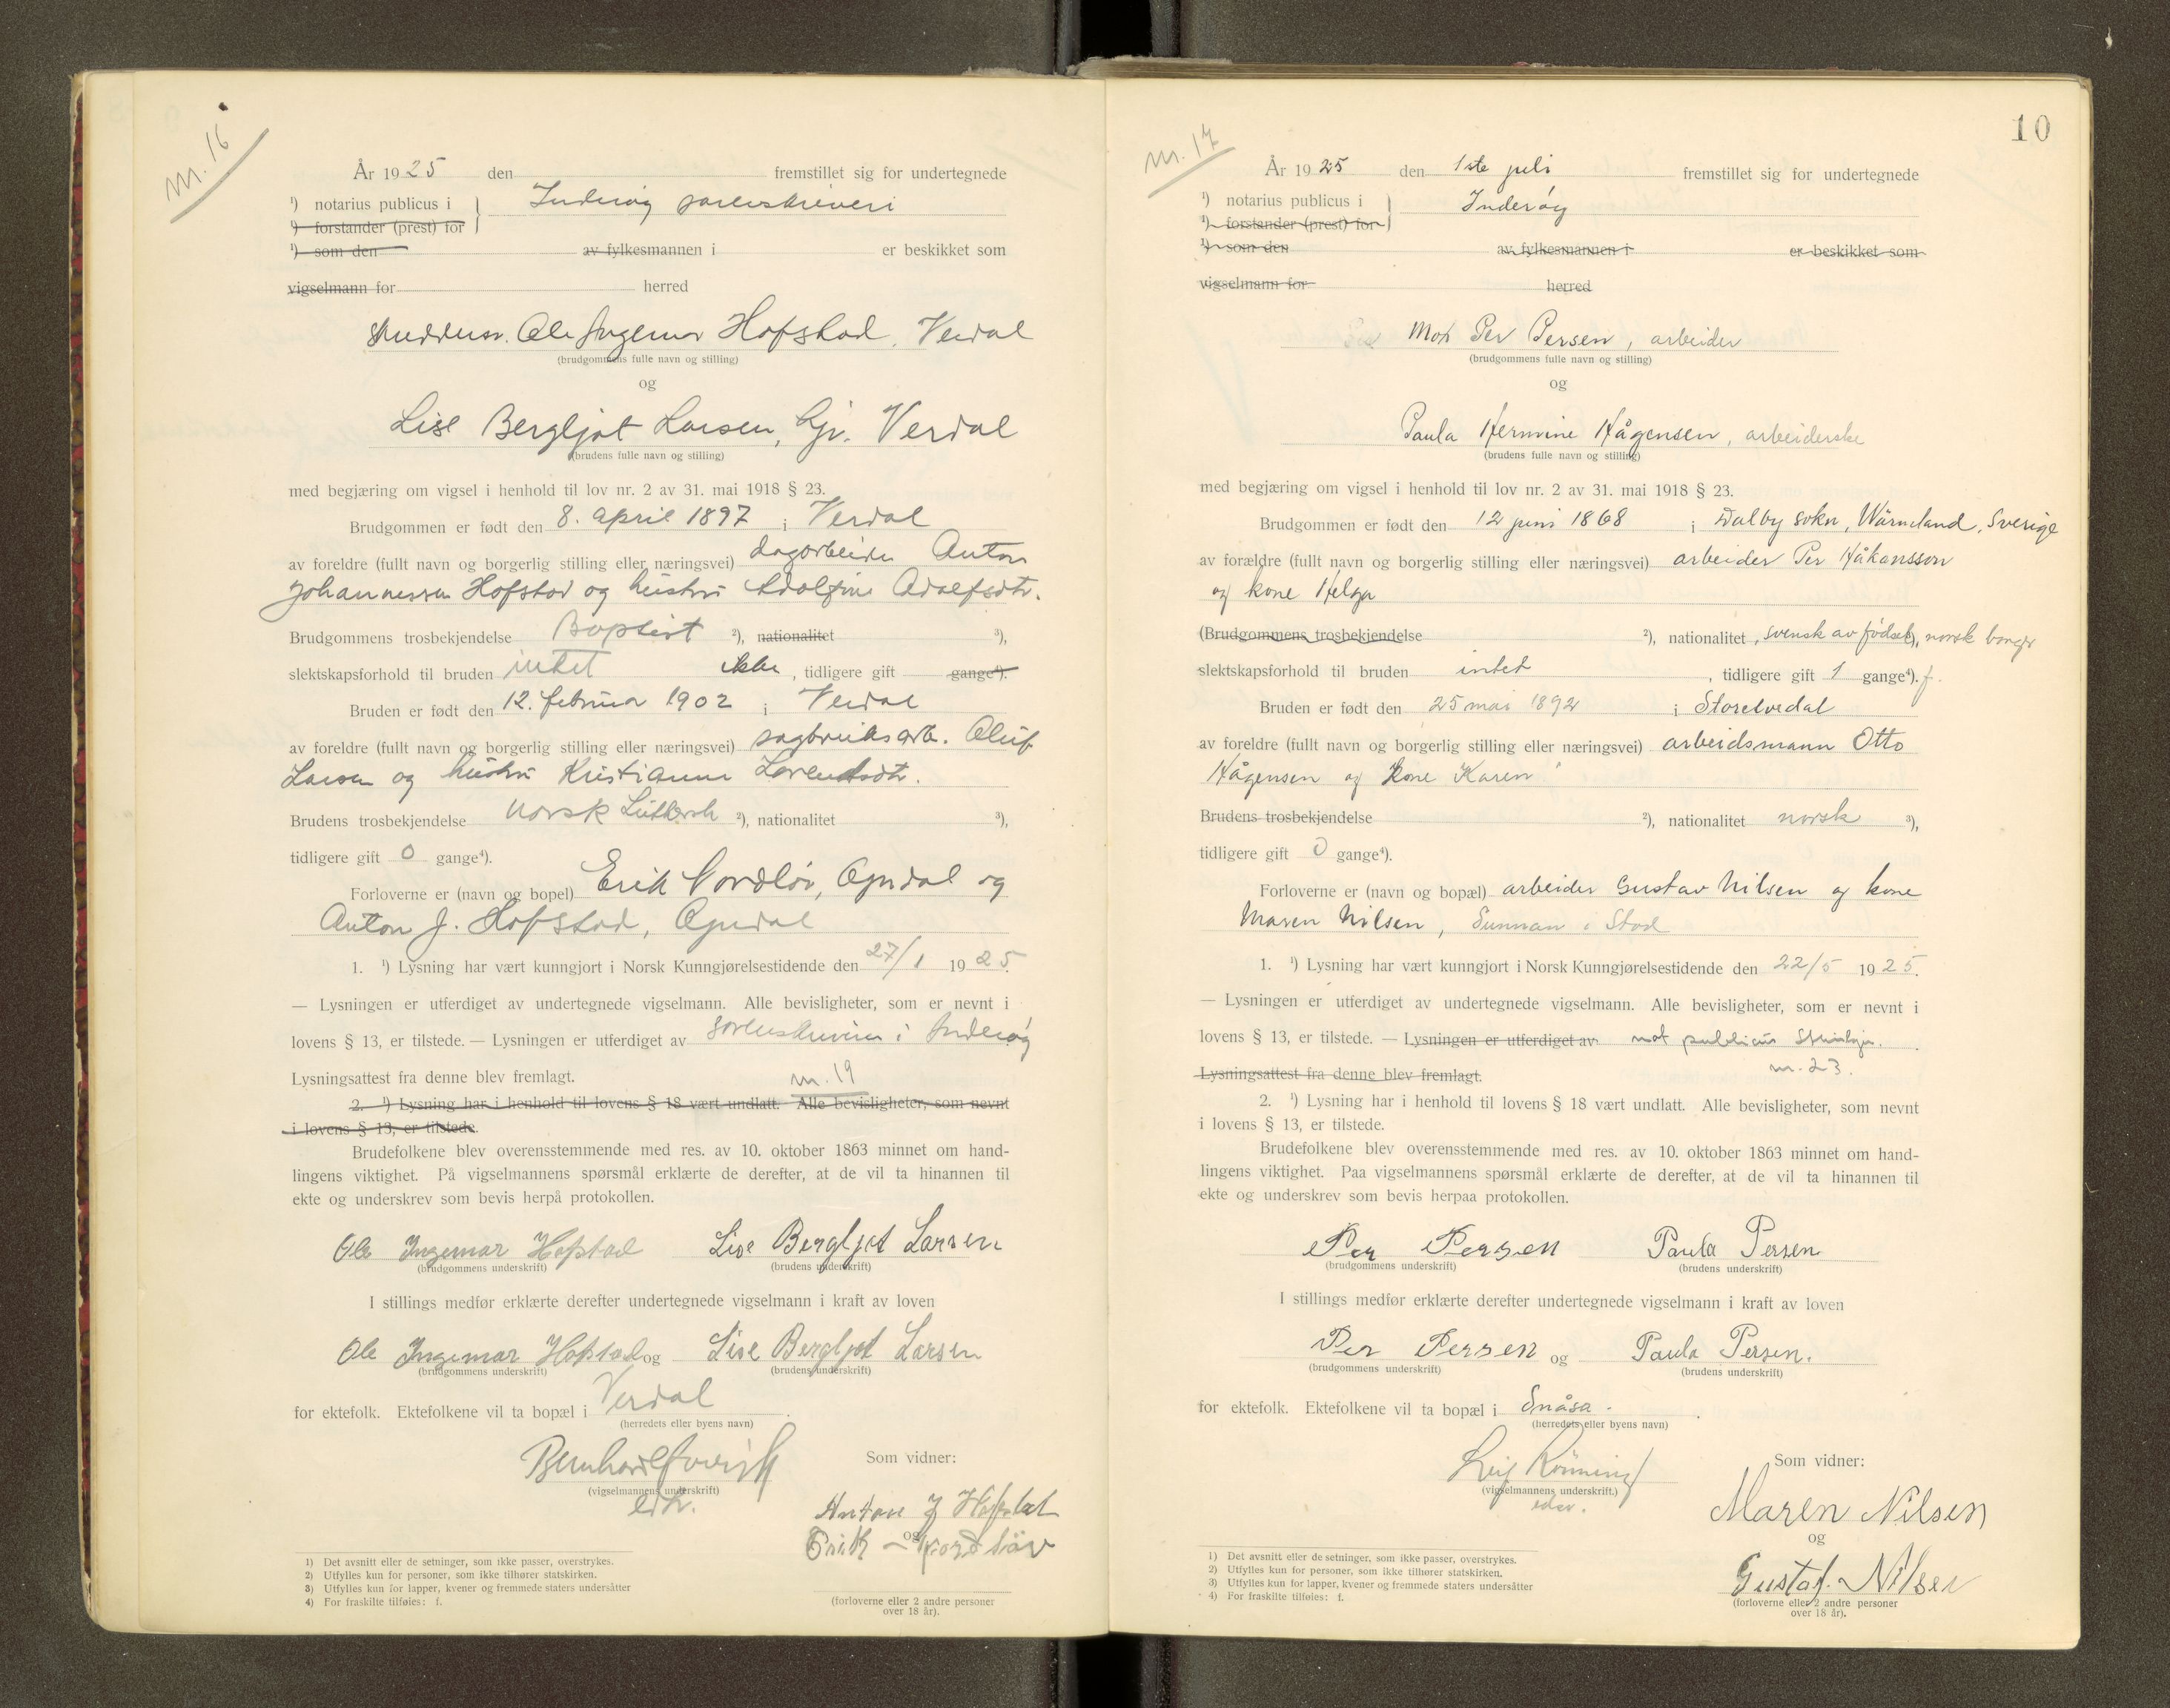 nr. 16
År 1925 den fremstillet sig for undertegnede
¹) notarius publicus i Inderøy sorenskriveri
¹) forstander (prest) for
¹) som den av fylkesmannen i er beskikket som
vigselmann for herred
Ole Ingemar Hofstad, Verdal
(brudgommens fulle navn og stilling)
og
Lise Bergljot Larsen, Verdal
(brudens fulle navn og stilling)
med begjæring om vigsel i henhold til lov nr. 2 av 31. mai 1918 § 23.
Brudgommen er født den 8. april 1897 i Verdal
av foreldre (fullt navn og borgerlig stilling eller næringsvei) dagarbeider Anton
Johannessen Hofstad og hustru Adolfine Adolfsdtr.
Brudgommens trosbekjendelse Baptist ²), nationalitet ³),
slektskapsforhold til bruden intet ikke, tidligere gift gange⁴).
Bruden er født den 12. februar 1902 i Verdal
av foreldre (fullt navn og borgerlig stilling eller næringsvei) sagbruksarb. Oluf
Larsen og hustru Kristianne Lorentsdtr.
Brudens trosbekjendelse norsk Luthersk ²), nationalitet ³),
tidligere gift 0 gange⁴).
Forloverne er (navn og bopel) Erik Nordløv, Ørndal og
Anton J. Hofstad, Ørndal
1. ¹) Lysning har vært kunngjort i Norsk Kunngjørelsestidende den 27/1 1925.
— Lysningen er utferdiget av undertegnede vigselmann. Alle bevisligheter, som er nevnt i
lovens § 13, er tilstede. — Lysningen er utferdiget av sorenskriveren i Inderøy
Lysningsattest fra denne blev fremlagt. nr. 19
2. ¹) Lysning har i henhold til lovens § 18 vært undlatt. Alle bevisligheter, som nevnt
i lovens § 13, er tilstede.
Brudefolkene blev overensstemmende med res. av 10. oktober 1863 minnet om hand-
lingens viktighet. På vigselmannens spørsmål erklærte de derefter, at de vil ta hinannen til
ekte og underskrev som bevis herpå protokollen.
Ole Ingemar Hofstad Lise Bergljot Larsen
(brudgommens underskrift) (brudens underskrift)
I stillings medfør erklærte derefter undertegnede vigselmann i kraft av loven
Ole Ingemar Hofstad og Lise Bergljot Larsen
(brudgommens underskrift) (brudens underskrift)
for ektefolk. Ektefolkene vil ta bopæl i Verdal.
(herredets eller byens navn)
Som vidner:
(vigselmannens underskrift)
Anton J Hofstad
og
Erik Nordløv
1) Det avsnitt eller de setninger, som ikke passer, overstrykes.
2) Utfylles kun for personer, som ikke tilhører statskirken.
3) Utfylles kun for lapper, kvener og fremmede staters undersåtter
4) For fraskilte tilføies: f.
(forloverne eller 2 andre personer
over 18 år).
10
nr. 17
År 1925 den 1ste juli fremstillet sig for undertegnede
¹) notarius publicus i Inderøy
¹) forstander (prest) for
¹) som den av fylkesmannen i er beskikket som
vigselmann for herred
Per Persen, arbeider
(brudgommens fulle navn og stilling)
og
Paula Hermine Hågensen, arbeiderske
(brudens fulle navn og stilling)
med begjæring om vigsel i henhold til lov nr. 2 av 31. mai 1918 § 23.
Brudgommen er født den 12 juni 1868 i Dalby sokn, Wärmland, Sverige
av forældre (fullt navn og borgerlig stilling eller næringsvei) arbeider Per Håkansson
og kone Helga
(Brudgommens trosbekjendelse ²), nationalitet, svensk av fødsel), norsk borger
slektskapsforhold til bruden intet, tidligere gift 1 gange⁴). f.
Bruden er født den 25 mai 1892 i Storelvedal
av foreldre (fullt navn og borgerlig stilling eller næringsvei) arbeidsmann Otto
Hågensen og kone Karen
Brudens trosbekjendelse ²), nationalitet norsk ³),
tidligere gift 0 gange⁴).
Forloverne er (navn og bopæl) arbeider Gustav Nilsen og kone
Maren Nilsen, Sunnan i Stod
1. ¹) Lysning har vært kunngjort i Norsk Kunngjørelsestidende den 22/5 1925.
— Lysningen er utferdiget av undertegnede vigselmann. Alle bevisligheter, som er nevnt i
lovens § 13, er tilstede. — Lysningen er utferdiget av not publicus Steinkjer.
Lysningsattest fra denne blev fremlagt. nr. 23.
2. ¹) Lysning har i henhold til lovens § 18 vært undlatt. Alle bevisligheter, som nevnt
i lovens § 13, er tilstede.
Brudefolkene blev overensstemmende med res. av 10. oktober 1863 minnet om hand-
lingens viktighet. Paa vigselmannens spørsmål erklærte de derefter, at de vil ta hinannen til
ekte og underskrev som bevis herpaa protokollen.
Per Persen Paula Persen
(brudgommens underskrift) (brudens underskrift)
I stillings medfør erklærte derefter undertegnede vigselmann i kraft av loven
Per Persen og Paula Persen.
(brudgommens underskrift) (brudens underskrift)
for ektefolk. Ektefolkene vil ta bopæl i Snåsa.
(herredets eller byens navn)
Leif Rönning Som vidner:
(vigselmannens underskrift.)
edsv.
Maren Nilsen
og
Gustaf Nilsen
1) Det avsnitt eller de setninger, som ikke passer, overstrykes.
2) Utfylles kun for personer, som ikke tilhører statskirken.
3) Utfylles kun for lapper, kvener og fremmede staters undersåtter
4) For fraskilte tilføies: f.
(forloverne eller 2 andre personer
over 18 år).